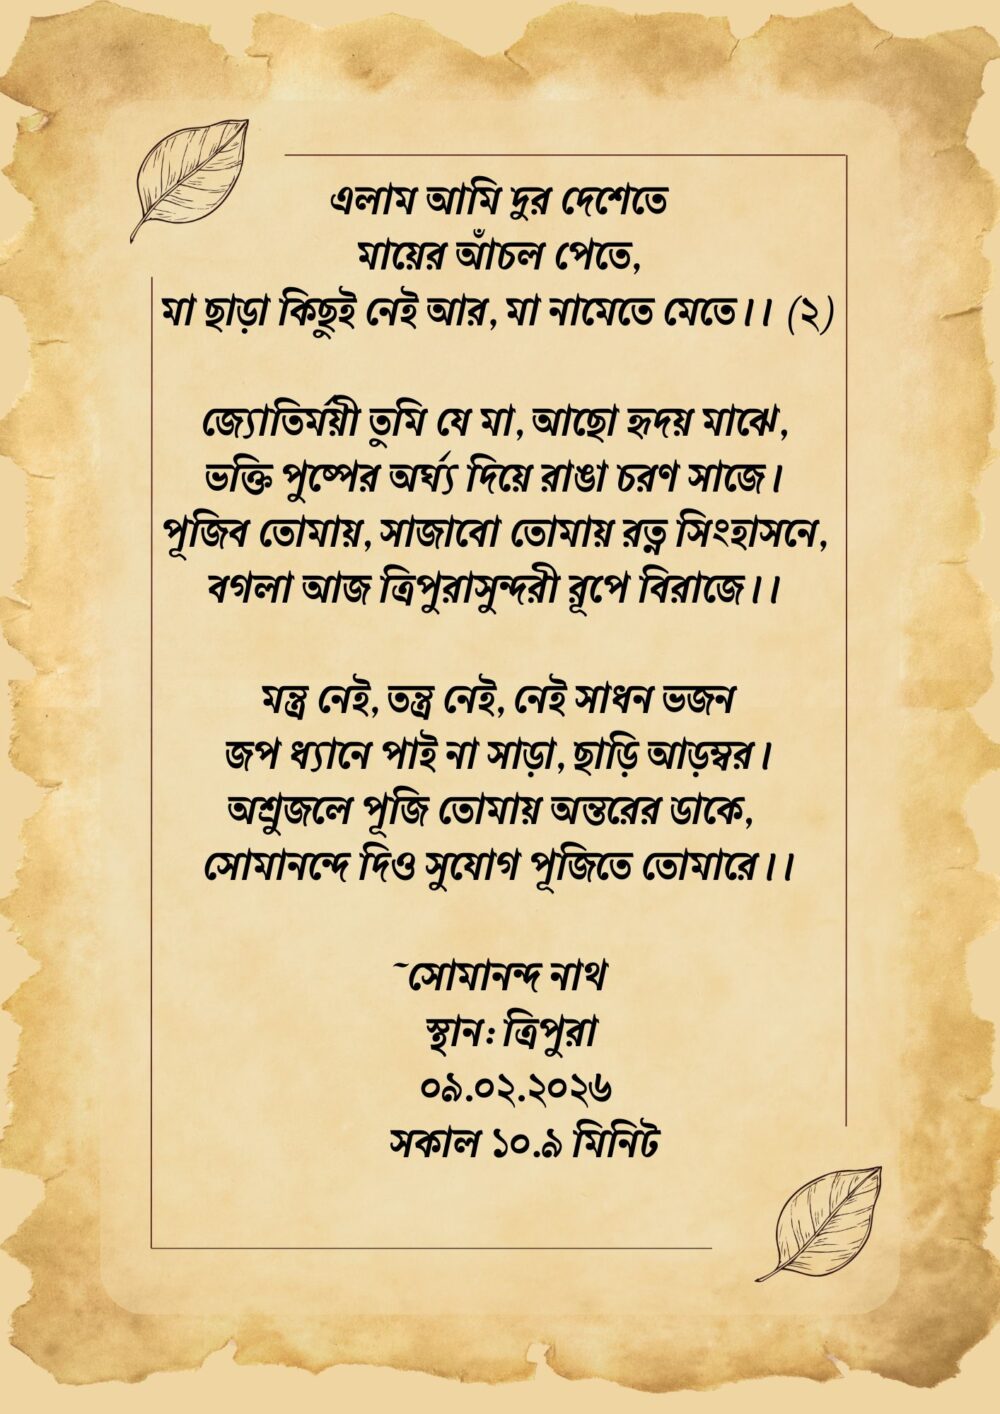 এলাম আমি দুর দেশেতে
মায়ের আঁচল পেতে,
মা ছাড়া কিছুই নেই আর, মা নামেতে মেতে।। (২)
জ্যোতির্ময়ী তুমি যে মা, আছো হৃদয় মাঝে,
ভক্তি পুষ্পের অর্ঘ্য দিয়ে রাঙা চরণ সাজে।
পূজিব তোমায়, সাজাবো তোমায় রত্ন সিংহাসনে,
বগলা আজ ত্রিপুরাসুন্দরী রূপে বিরাজে।।
মন্ত্র নেই, তন্ত্র নেই, নেই সাধন ভজন
জপ ধ্যানে পাই না সাড়া, ছাড়ি আড়ম্বর।
অশ্রুজলে পূজি তোমায় অন্তরের ডাকে,
সোমানন্দে দিও সুযোগ পূজিতে তোমারে।।
~সোমানন্দ নাথ
স্থান: ত্রিপুরা
০৯.০২.২০২৬
সকাল ১০.৯ মিনিট